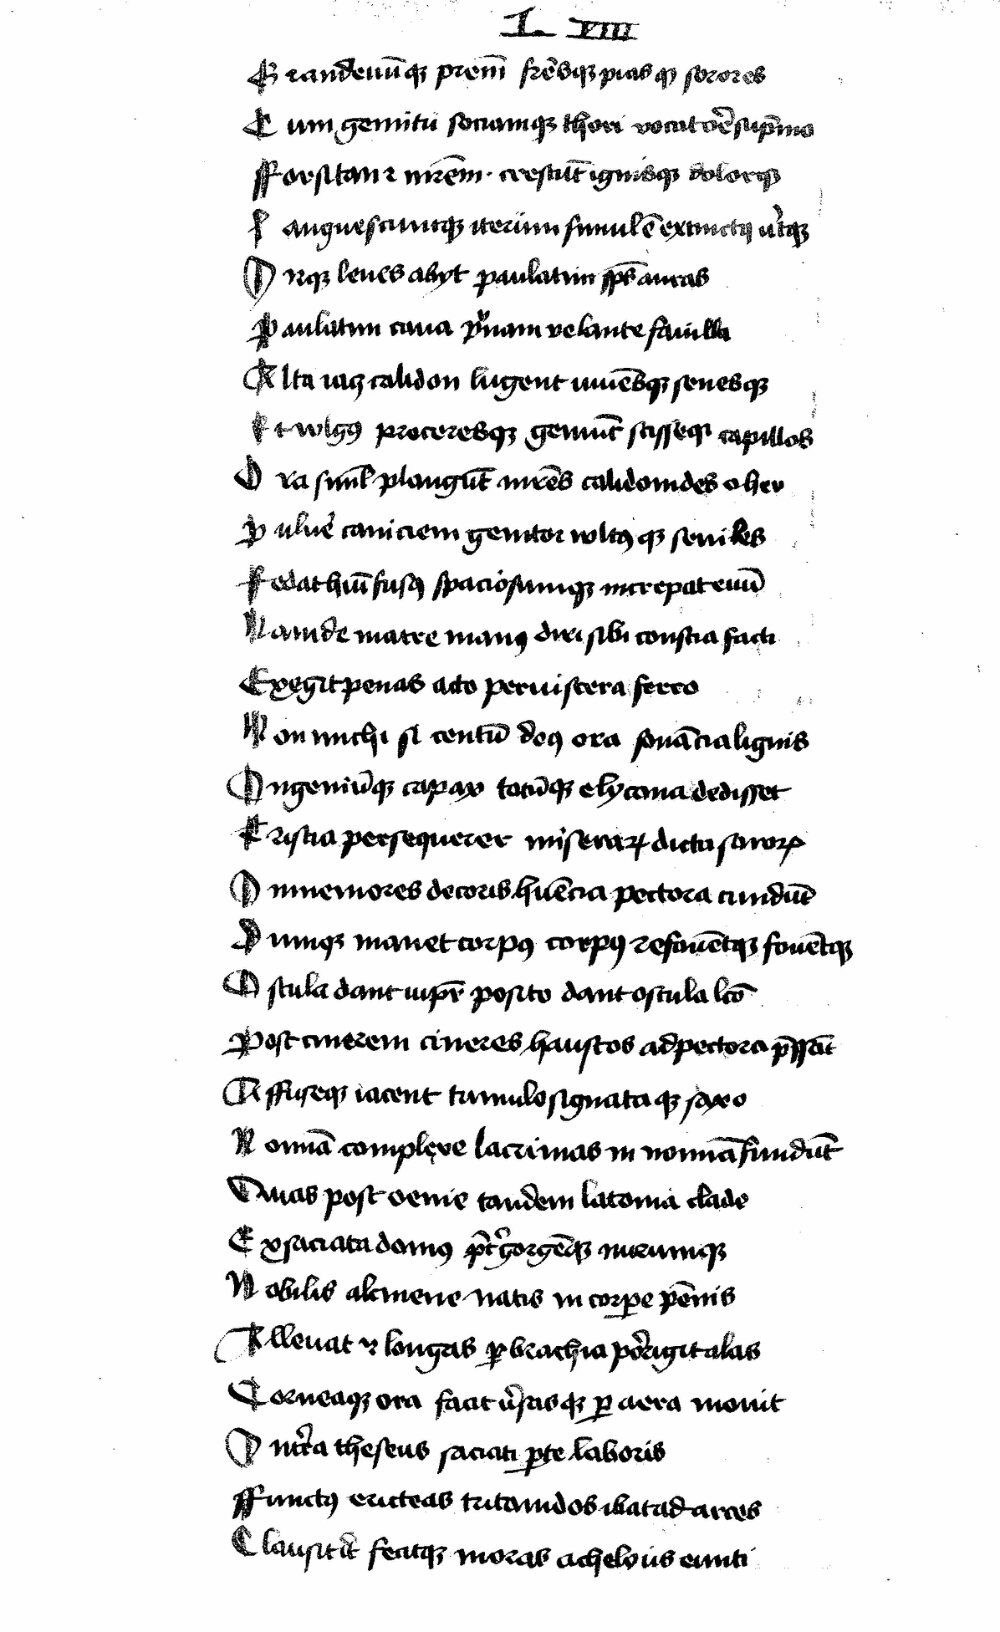 L VIII
Grandeuūq; prem̄ fr̄esq; pias q; sorores
Cum gemitu sociamq; thori vocat ore sup̄mo
fforsitan ⁊ mr̄em. crescūt ignisq; dolorq;
languescuntq; iterum simul ē extinctꝰ ut̄q;
Inq; leues abijt paulatim sp̄s auras
Paulatim cana prunam velante fauilla
Alta iacꝫ calidon lugent iuuēsq; senesq;
Et vlgꝰ proceresq; gemūt scisseq; capillos
Ora siml̄ plangūt mr̄es calidonides ehen
Puluē caniciem genitor vltꝰq; seniles
Fedat humī fusꝰ spaciosumq; increpat euū
Nam de matre manꝰ diri sibi conscia facti
Exegit penas acto per viscera ferro
Non michi si centū deꝰ ora sonācia liguis
Ingeniūq; capax totūq; elycona dedisset
Tristia persequerer miseraꝝ dicta soroꝝ
Inmemores decoris liuēcia pectora tundūt
Dumq; manet corpꝰ corpꝰ refouētq; fouētq;
Oscula dant ip̄i posito dant oscula lc̄o
Post cinerem cineres haustos ad pectora p̄ssāt
Affuseq; iacent tumulo signataq; saxo
Nomīa complexe lacrimas in nomīa fundūt
Quas post oenie tandem latonia clade
Exsaciata domus p̄t̄ gorgēq; nurumq;
Nobilis alcmene natis in corpe pēnis
Alleuat ⁊ longas ꝑ brachia porrigit alas
Corneaq; ora facit v̄sasq; ꝑ aera mouit
Int̄ea theseus saciati ꝑte laboris
ffunctꝰ ericteas tritonidos ibat ad arces
Clausit it̄ fecitq; moras achelous eunti